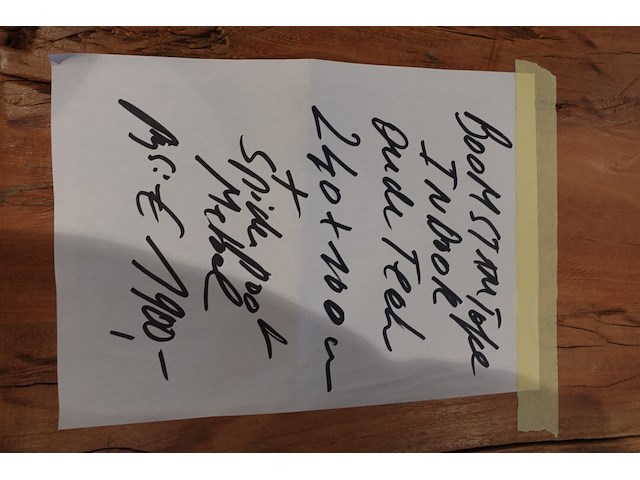 BOOMSTAMTafel
INDOOR
Oude Teak
240 x 100 cm
+
Spider Poot
Metaal
Prijs: € 1400,-